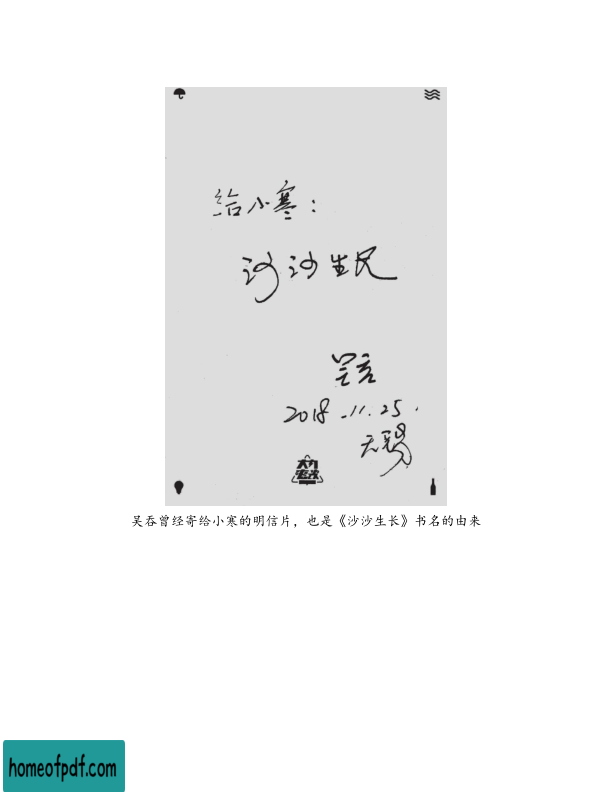 给小寒：
沙沙生长
吴吞
2018.11.25.
无锡
吴吞曾经寄给小寒的明信片，也是《沙沙生长》书名的由来
homeofpdf.com